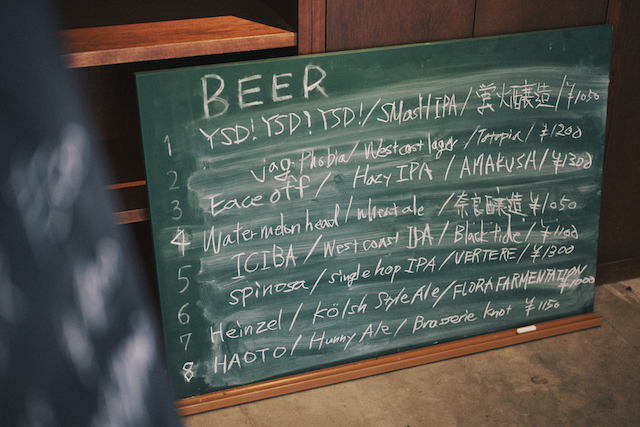 BEER
1 YSD! YSD! YSD! / SMaSH IPA / 蛍火醸造 / ¥1050
2 Jag Phobia / West coast lager / Totopia / ¥1200
3 Face off / Hazy IPA / AMAKUSA / ¥1300
4 Watermelon head / wheat ale / 奈良醸造 ¥1050
5 ICIBA / West coast IPA / Black tide / ¥1100
6 spinosa / single hop IPA / VERTERE / ¥1300
7 Heinzel / kölsh Style Ale / FLORA FARMENTATION
8 HAOTO / Hunny Ale / Brasserie Knot ¥1150